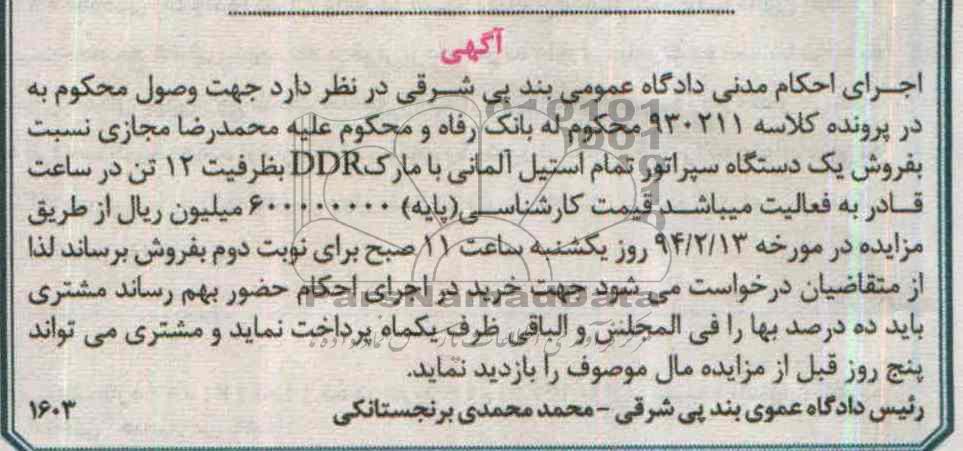 آگهی
اجرای احکام مدنی دادگاه عمومی بند پی شرقی در نظر دارد جهت وصول محکوم به
در پرونده کلاسه ۹۳۰۲۱۱ محکوم له بانک رفاه و محکوم علیه محمدرضا مجازی نسبت
بفروش یک دستگاه سپراتور تمام استیل آلمانی با مارک DDR بظرفیت ۱۲ تن در ساعت
قادر به فعالیت میباشد قیمت کارشناسی(پایه) ۶۰۰۰۰۰۰۰۰ میلیون ریال از طریق
مزایده در مورخه ۹۴/۲/۱۳ روز یکشنبه ساعت ۱۱ صبح برای نوبت دوم بفروش برساند لذا
از متقاضیان درخواست می شود جهت خرید در اجرای احکام حضور بهم رساند مشتری
باید ده درصد بها را فی المجلس و الباقی ظرف یکماه پرداخت نماید و مشتری می تواند
پنج روز قبل از مزایده مال موصوف را بازدید نماید.
رئیس دادگاه عموی بند پی شرقی - محمد محمدی برنجستانکی
۱۶۰۳
ParsNamadData